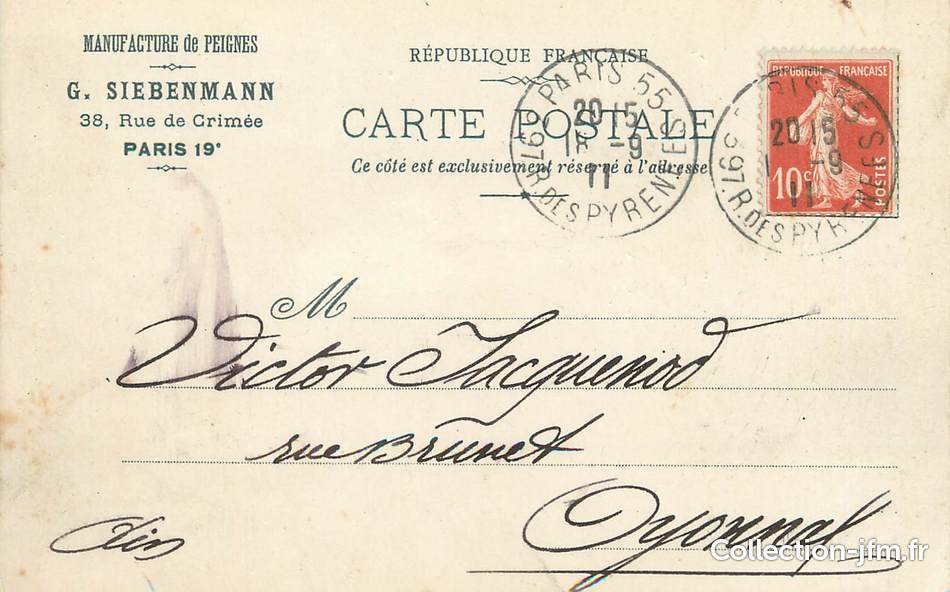 MANUFACTURE de PEIGNES
G. SIEBENMANN
38, Rue de Crimée
PARIS 19e
RÉPUBLIQUE FRANÇAISE
CARTE POSTALE
Ce côté est exclusivement réservé à l'adresse
PARIS 55
20 15
-9
11
397 R. DES PYRENEES
RÉPUBLIQUE FRANÇAISE
10c
POSTES
PARIS 55
20 15
-9
11
397 R. DES PYRENEES
M
Victor Jacquenod
rue Brunet
Oyonnax
Ain
Collection-jfm.fr